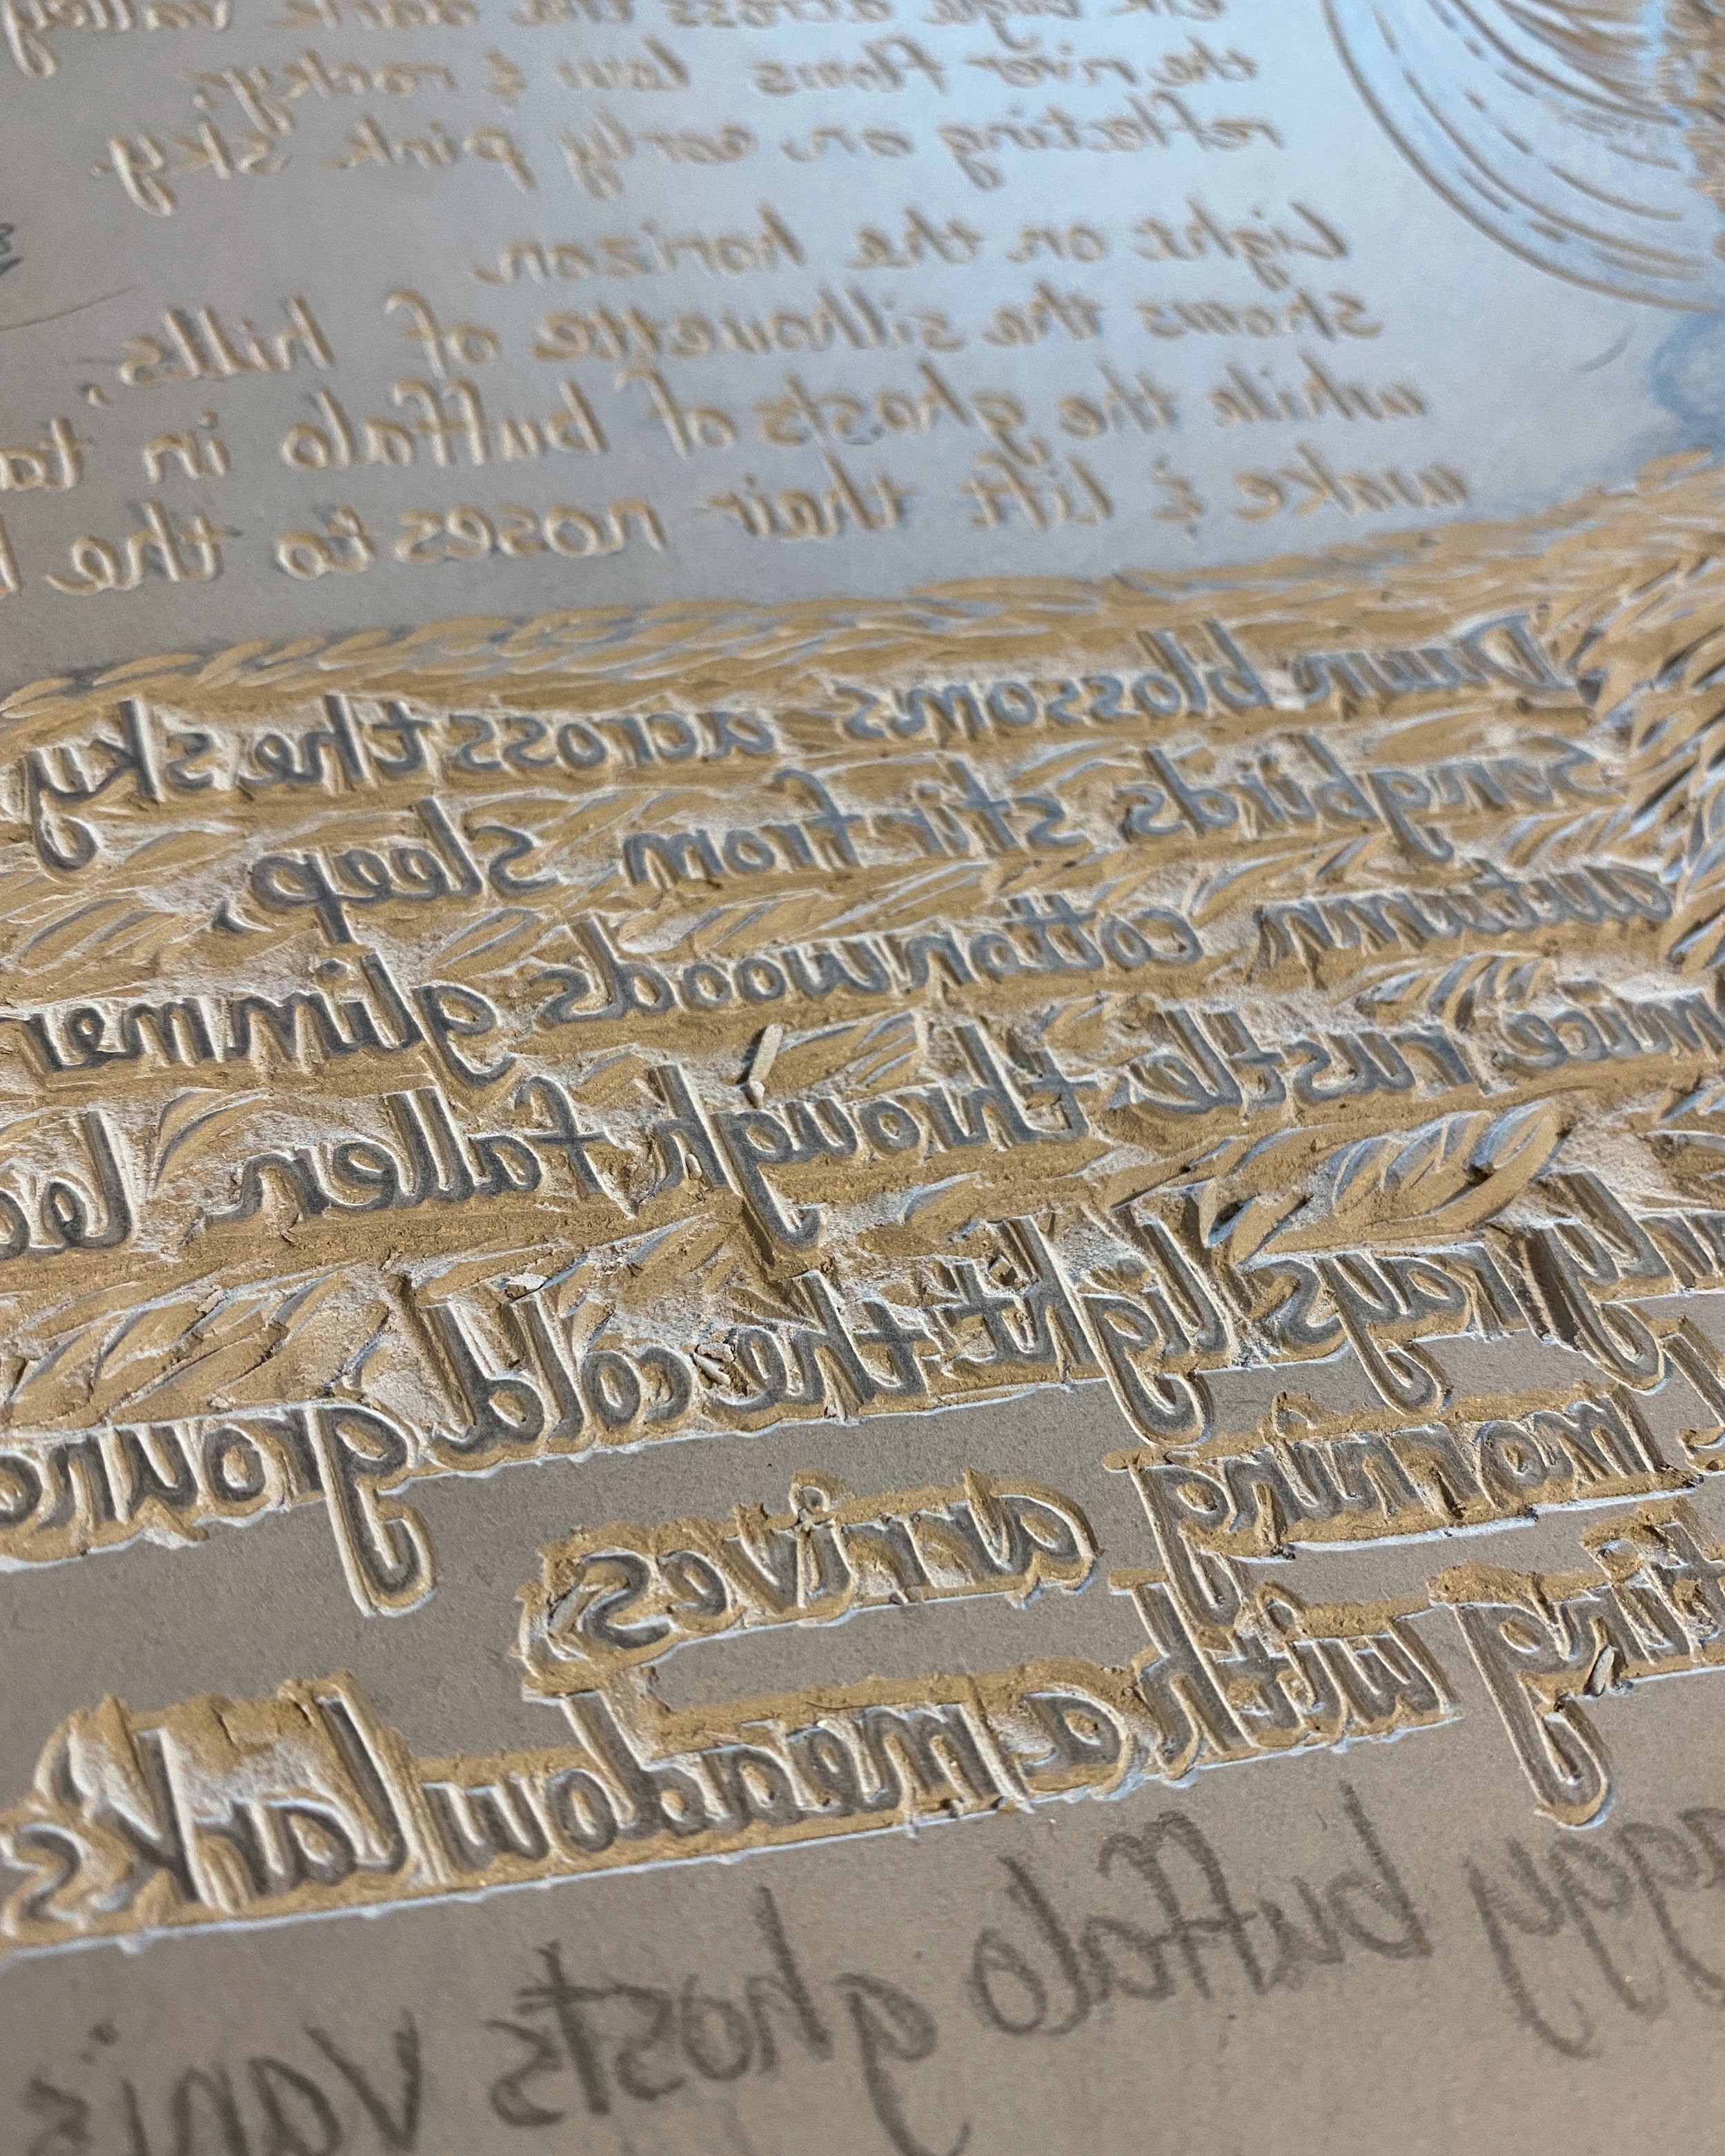 elk bugle across the dark valley
the river flows low & rocky,
reflecting an early pink sky.
Light on the horizon
shows the silhouette of hills,
while the ghosts of buffalo in
wake & lift their noses to the
Dawn blossoms across the sky
Songbirds stir from sleep,
autumn cottonwoods glimmer
mice rustle through fallen
rays light the cold ground
morning arrives
with a meadowlarks
buffalo ghosts